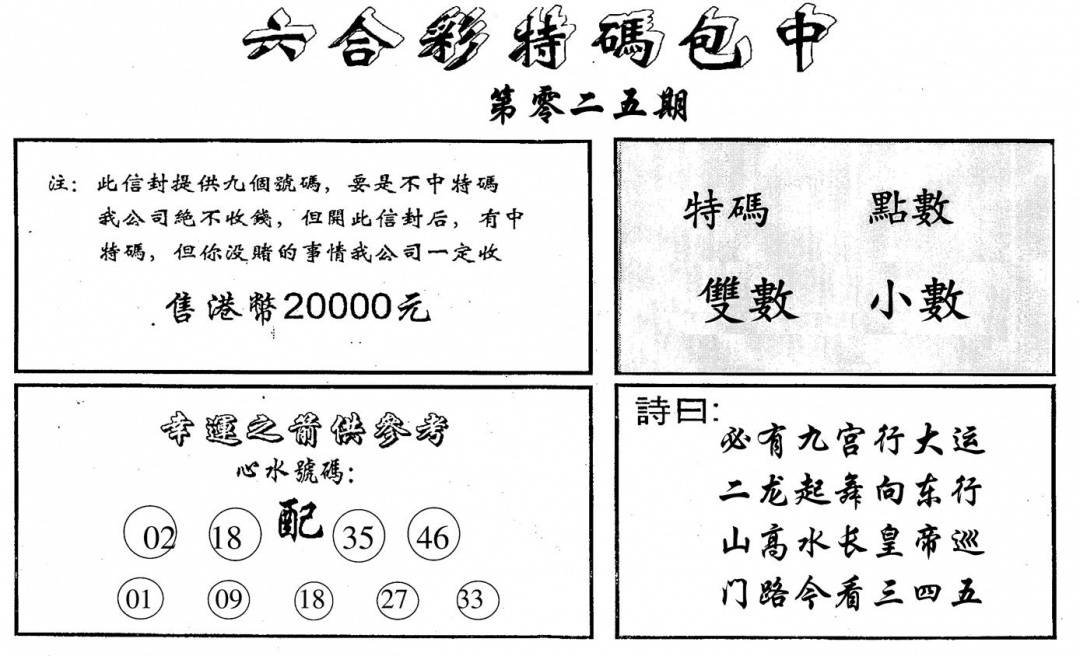 六合彩特碼包中
第零二五期
注：此信封提供九個號碼，要是不中特碼
我公司絶不收錢，但開此信封后，有中
特碼，但你没賭的事情我公司一定收
售港幣20000元
特碼 點數
雙數 小數
幸運之箭供參考
心水號碼：
02 18 配 35 46
01 09 18 27 33
詩曰：
必有九宫行大运
二龙起舞向东行
山高水长皇帝巡
门路今看三四五